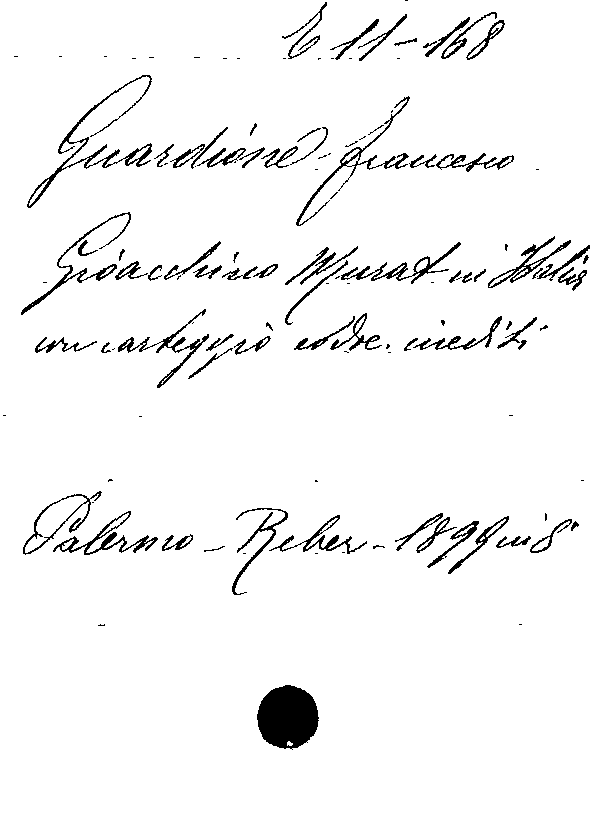 E 11-168
Guardione Francesco
Gioacchino Murat in Italia
con carteggio e doc. inediti
Palermo - Reber - 1899 in 8°